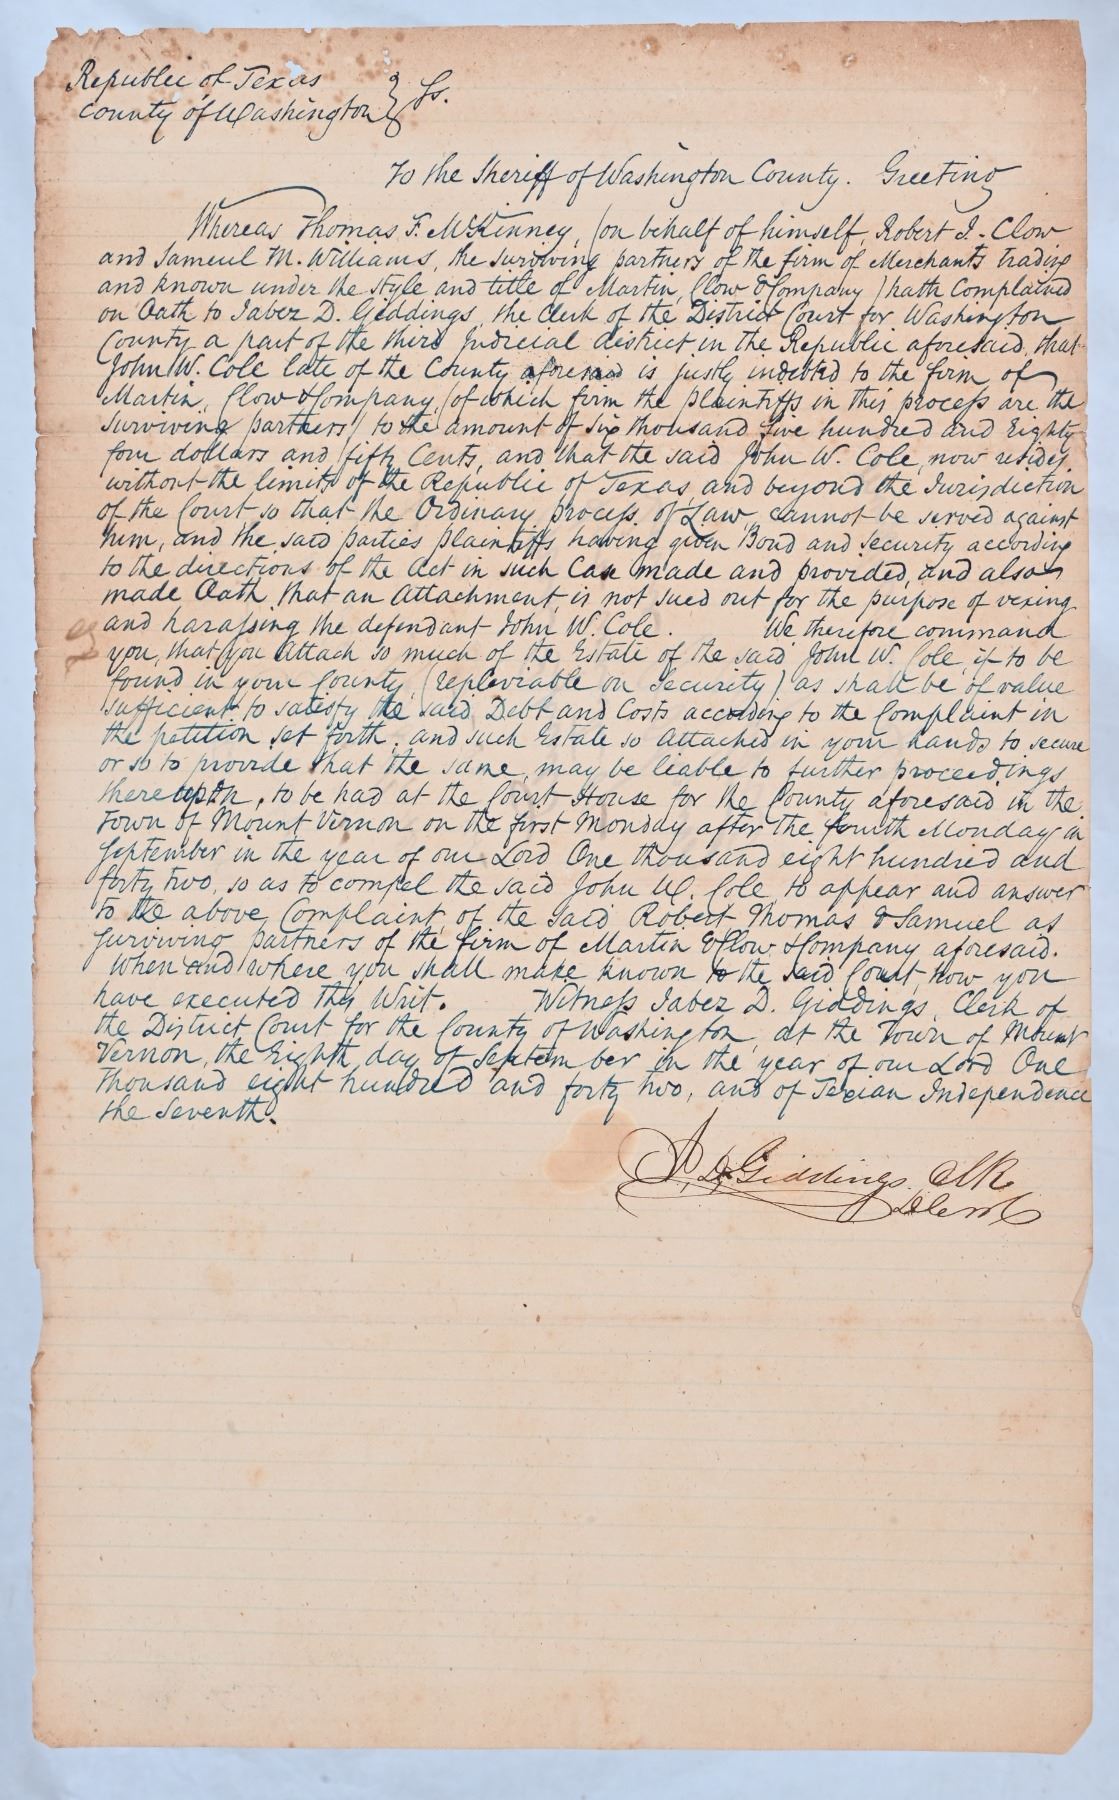 Republic of Texas
County of Washington } Ss.
To the Sheriff of Washington County. Greeting
Whereas Thomas F. McKinney, (on behalf of himself, Robert J. Clow
and Sameul M. Williams, the surviving partners of the firm of Merchants trading
and known under the style and title of Martin, Clow & Company) hath Complained
on Oath to Jabez D. Giddings, the Clerk of the District Court for Washington
County a part of the third Judicial district in the Republic aforesaid, that
John W. Cole late of the County aforesaid is justly indebted to the firm of
Martin, Clow & Company, (of which firm the plaintiffs in this process are the
surviving partners) to the amount of six thousand five hundred and Eighty
four dollars and fifty Cents, and that the said John W. Cole, now resides
without the limits of the Republic of Texas, and beyond the Jurisdiction
of the Court, so that the Ordinary process of Law, cannot be served against
him, and the said parties plaintiffs having given Bond and security according
to the directions of the Act in such Case made and provided, and also
made Oath, that an Attachment, is not sued out for the purpose of vexing
and harassing the defendant John W. Cole. We therefore command
you, that you Attach so much of the Estate of the said John W. Cole, if to be
found in your County, (repleviable on security) as shall be of value
sufficient to satisfy the said Debt and Costs according to the Complaint in
the petition set forth. and such Estate so Attached in your hands to secure
or so to provide that the same, may be leable to further proceedings
thereupon, to be had at the Court House for the County aforesaid in the
Town of Mount Vernon on the first Monday after the fourth Monday in
September in the year of our Lord One thousand eight hundred and
forty two, so as to compel the said John W. Cole, to appear and answer
to the above Complaint, of the said Robert Thomas & Samuel as
surviving partners of the firm of Martin & Clow & Company aforesaid.
When and where you shall make known to the said Court, how you
have executed this Writ. Witness Jabez D. Giddings, Clerk of
the District Court for the County of Washington, at the Town of Mount
Vernon, the Eighth day of September in the year of our Lord One
Thousand eight hundred and forty two, and of Texian Independence
the Seventh.
J. D. Giddings Clk